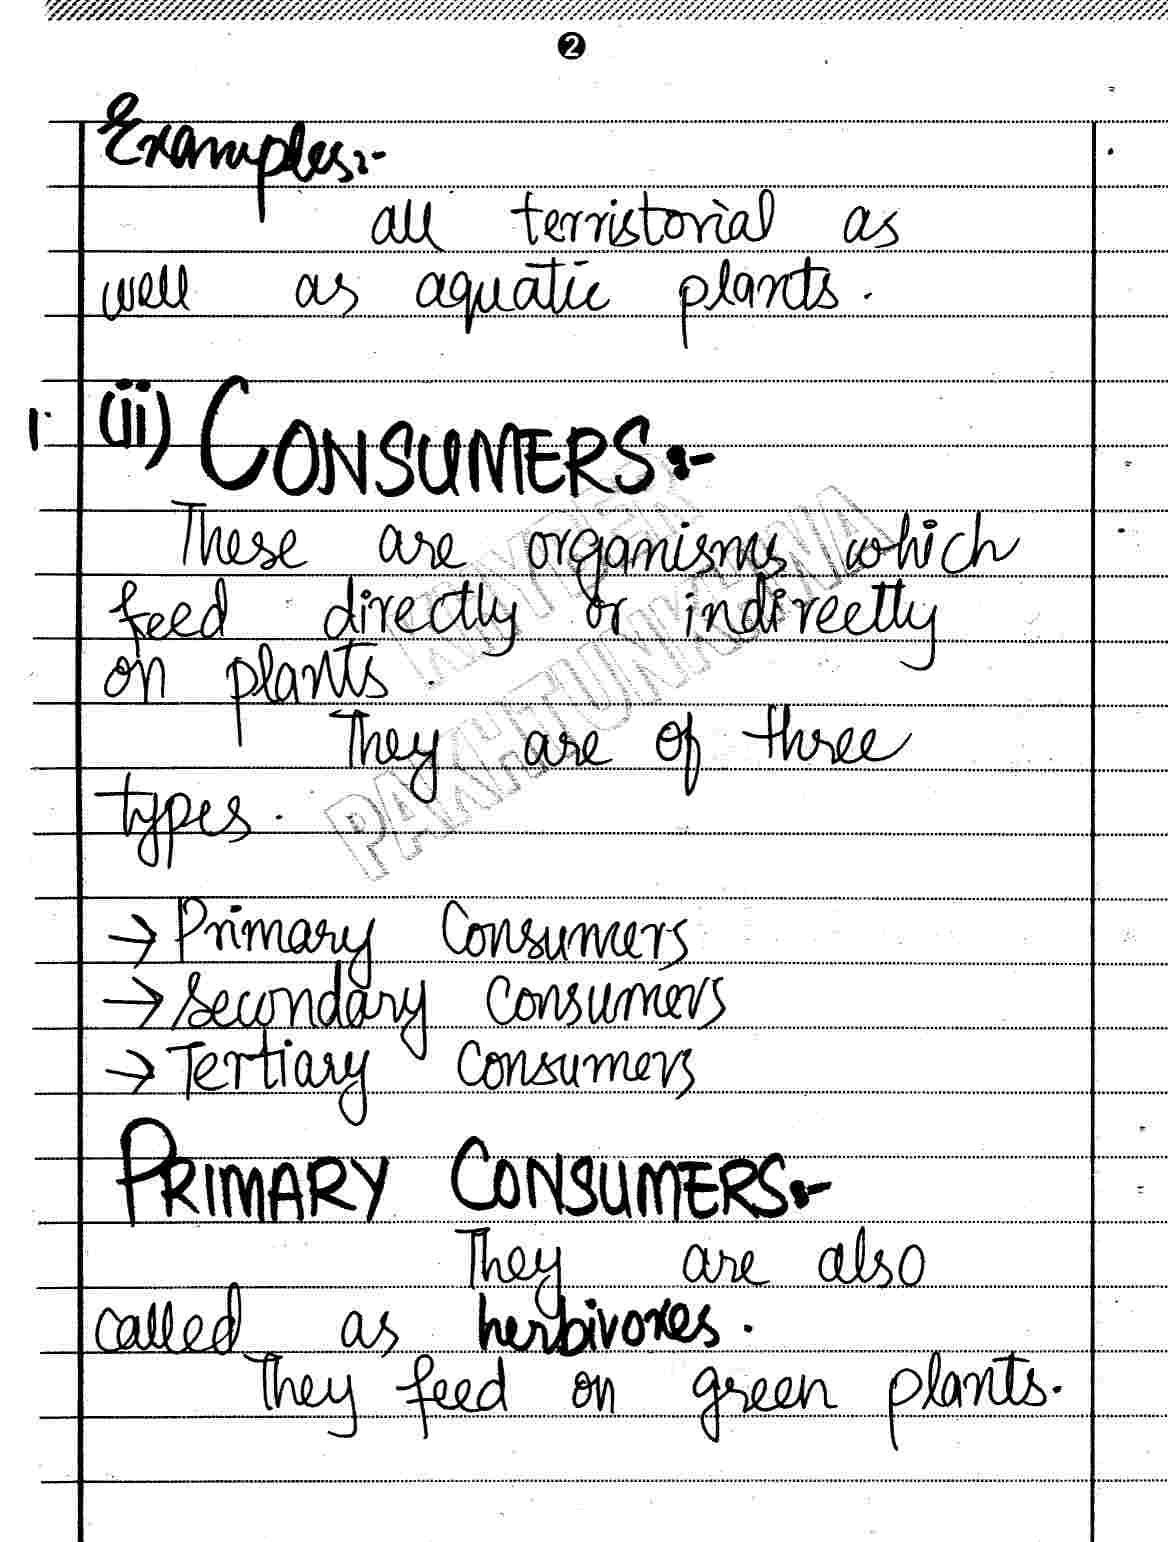 2
Examples:-
all terristorial as
well as aquatic plants.
1. (ii) CONSUMERS:-
These are organisms which
feed directly or indireetly
on plants.
They are of three
types.
→ Primary Consumers
→ Secondary Consumers
→ Tertiary Consumers
PRIMARY CONSUMERS:-
They are also
called as herbivores.
They feed on green plants.
KHYBER
PAKHTUNKHWA